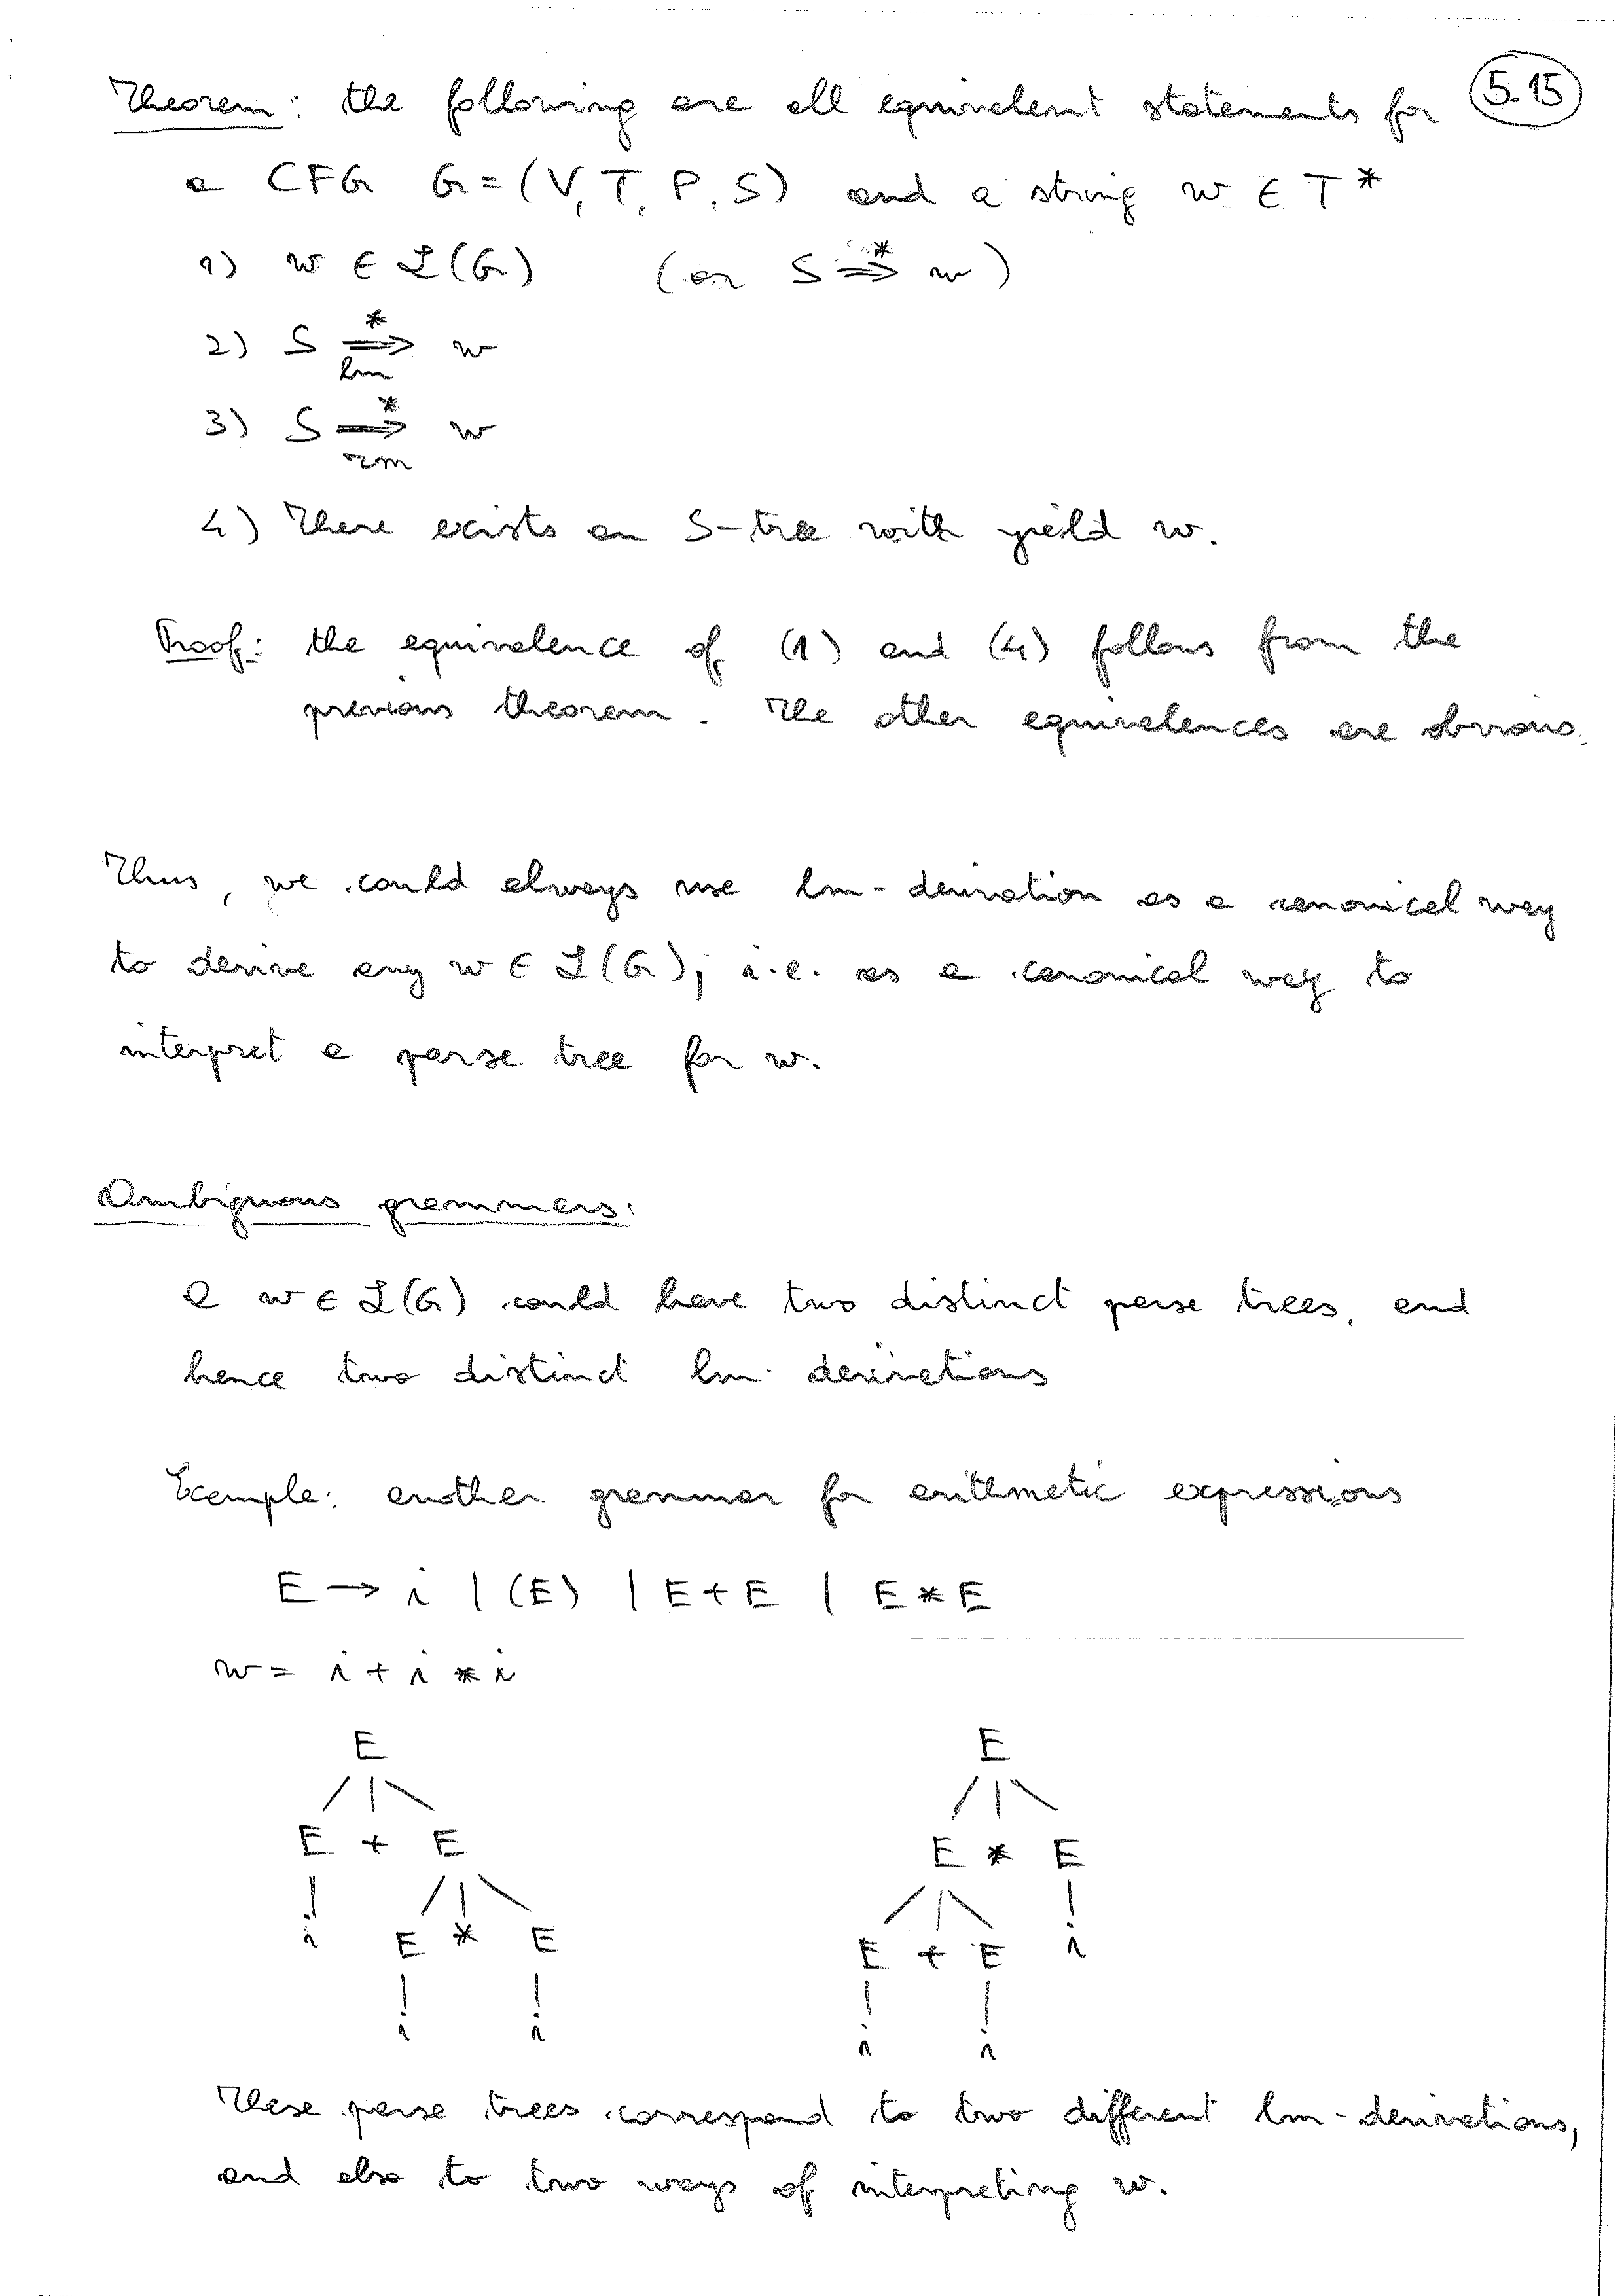 Theorem: the following are all equivalent statements for 5.15
a CFG G=(V,T,P,S) and a string w ∈ T*
1) w ∈ L(G) (or S ⇒* w)
2) S ⇒* w
lm
3) S ⇒* w
rm
4) There exists an S-tree with yield w.
Proof: the equivalence of (1) and (4) follows from the
previous theorem. The other equivalences are obvious.
Thus, we could always use lm-derivation as a canonical way
to derive any w ∈ L(G); i.e. as a canonical way to
interpret a parse tree for w.
Ambiguous grammars:
A w ∈ L(G) could have two distinct parse trees, and
hence two distinct lm-derivations
Example: another grammar for arithmetic expressions
E → i | (E) | E+E | E*E
w = i + i * i
E E
E + E E * E
i E * E E + E i
i i i i
These parse trees correspond to two different lm-derivations,
and also to two ways of interpreting w.